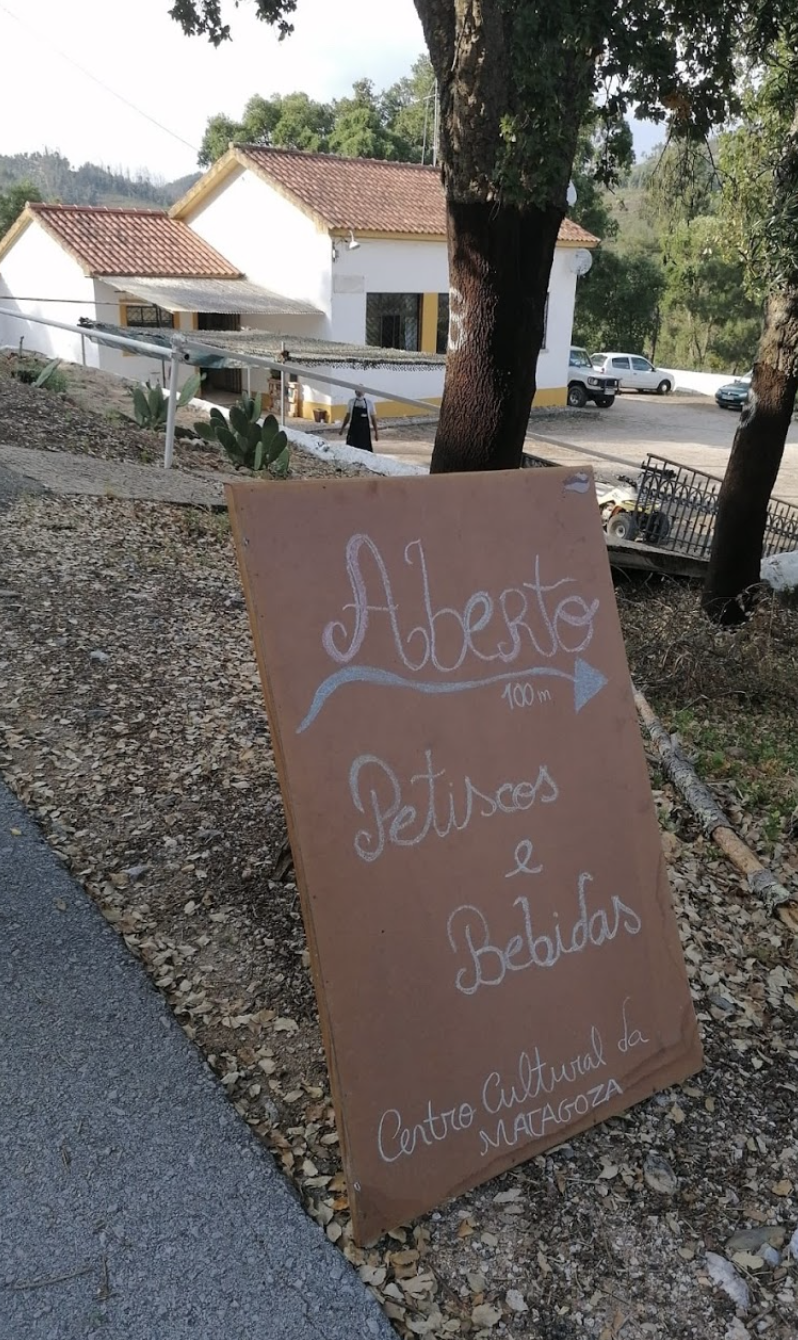 Aberto
100 m
Petiscos
e
Bebidas
Centro Cultural da
MATAGOZA